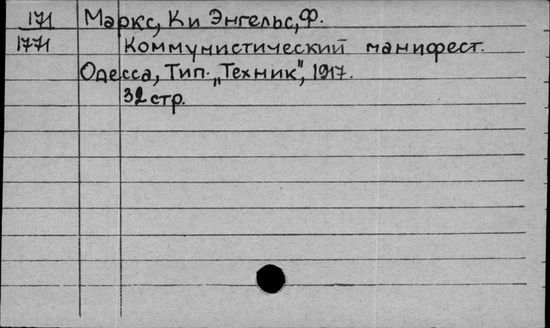 171 Маркс, К и Энгельс, Ф.
1771 Коммунистический манифест.
Одесса, Тип. „Техник", 1917.
32 стр.